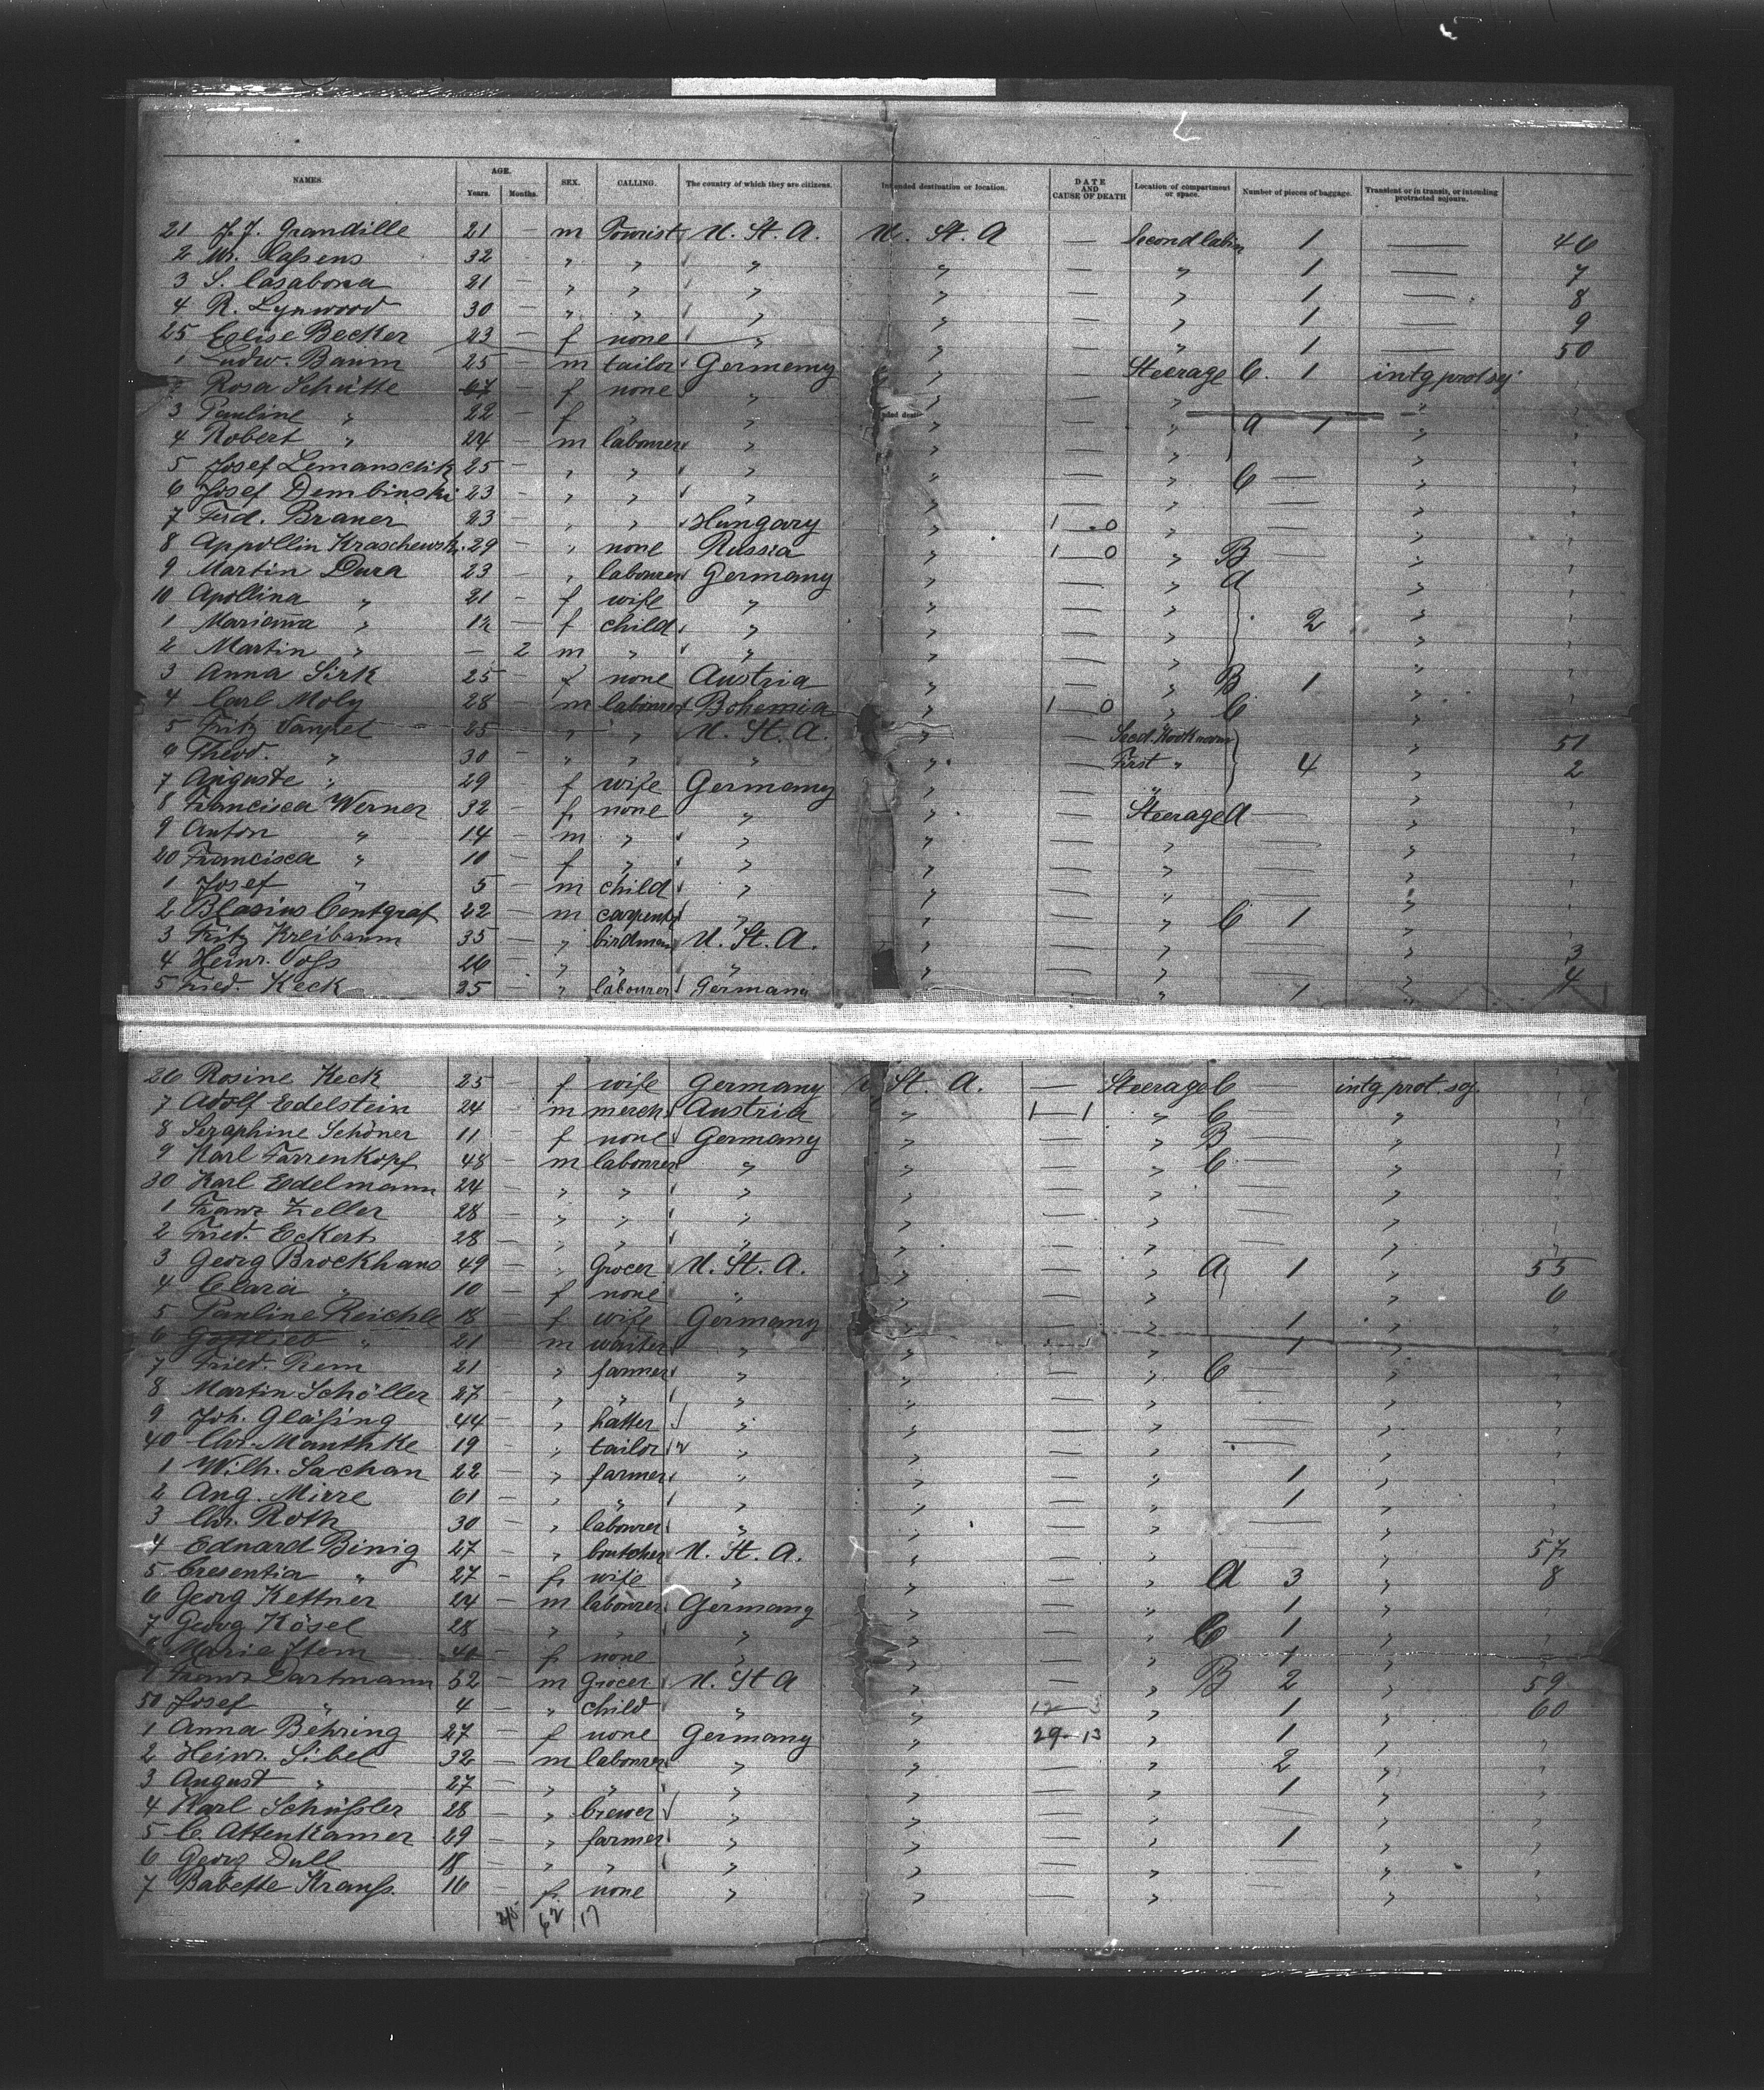 NAMES. AGE. Years. Months. SEX. CALLING. The country of which they are citizens. Intended destination or location. DATE AND CAUSE OF DEATH Location of compartment or space. Number of pieces of baggage. Transient or in transit, or intending protracted sojourn.
21 J. J. Grandille 21 — m Tourist U. St. A. U. St. A — Second Cabin 1 — 46
2 W. Claßens 32 „ „ „ „ — „ 1 — 7
3 S. Casabona 21 — „ „ „ „ — „ 1 — 8
4 R. Lynwood 30 — „ „ „ „ — „ 1 — 9
25 Elise Becker 23 — f none „ „ — „ 1 — 50
1 Ludw. Baum 25 — m tailor Germany „ — Steerage C. 1 intg prot sej
Rosa Schütte 67 — f none „ „ — „ „
3 Pauline „ 22 — f „ „ „ — „ a 1 „
4 Robert „ 24 — m labourer „ „ — „ „
5 Josef Lemanschik 25 — „ „ „ „ — „ C — „
6 Josef Dembinski 23 — „ „ „ „ — „ — „
7 Ferd. Braner 23 — „ „ Hungary „ 1 0 „ — „
8 Appollin Kraschewski 29 — „ none Russia „ 1 0 „ B — „
9 Martin Dura 23 — „ labourer Germany „ — „ a „
10 Apollina „ 21 — f wife „ „ — „ „
1 Marianna „ — f child „ „ — „ 2 „
2 Martin „ — 2 m „ „ „ — „ „
3 Anna Sirk 25 — f none Austria „ — „ B 1 „
4 Carl Moly 28 — m labourer Bohemia „ 1 0 „ C „
5 Fritz 25 „ „ U. St. A. „ — „ 51
6 Theod. „ 30 — „ „ „ „ — First „ 4 „ 2
7 Auguste „ 29 — f wife Germany „ — „ „
8 Francisca Werner 32 — f none „ „ — Steerage A — „
9 Anton „ 14 — m „ „ „ — „ — „
20 Francisca „ 10 — f „ „ „ — „ — „
1 Josef „ 5 — m child „ „ — „ — „
2 Blasius Centgraf 22 — m carpenter „ „ — „ C 1 „
3 Fritz Kreibaum 35 — „ birdman U. St. A. „ — „ — „ 3
4 Heinr. Voß 26 — „ „ „ „ — „ — „ 4
5 Fried. Keck 25 — „ labourer Germany „ 1 „
26 Rosine Keck 25 — f wife Germany U. St. A. — Steerage C intg prot. soj.
7 Adolf Edelstein 24 — m merch. Austria „ 1—1 „ C — „
8 Seraphine Schöner 11 — f none Germany „ — „ B — „
9 Karl Farrenkopf 48 — m labourer „ „ — „ C — „
30 Karl Edelmann 24 — „ „ „ „ — „ — „
1 Franz Zeller 28 — „ „ „ „ — „ — „
2 Fried. Eckert 28 — „ „ „ „ — „ — „
3 Georg Brockhaus 49 — „ Grocer U. St. A. „ — „ A 1 „ 55
4 Clara „ 10 — f none „ „ — „ „ 6
5 Pauline Reichle 18 — f wife Germany „ — „ 1 „
6 Gottlieb „ 21 — m waiter „ „ „ 1 „
7 Fried. Rem 21 — „ farmer „ „ — „ C — „
8 Martin Schöller 27 — „ „ „ „ — „ — „
9 Joh. Gläßing 44 — „ hatter „ „ — „ — „
40 Chr. Manthke 19 — „ tailor „ „ — „ — „
1 Wilh. Sachan 22 — „ farmer „ „ — „ 1 „
2 Aug. Mirre 61 — „ „ „ „ — „ 1 „
3 Chr. Roth 30 — „ labourer „ „ — „ — „
4 Eduard Binig 27 — „ boutcher U. St. A. „ — „ „ 57
5 Cresentia „ 27 — f wife „ „ — „ A 3 „ 8
6 Georg Kettner 24 — m labourer Germany „ — „ 1 „
7 Georg Kösel 28 — „ „ „ „ — „ C 1 „
8 Marie Stem 40 — f none „ „ — „ 1 „
9 Franz Dartmann 52 — m Grocer U. St A „ — „ B 2 „ 59
50 Josef „ 4 — „ child „ „ „ 1 „ 60
1 Anna Behring 27 — f none Germany „ 29—13 „ 1 „
2 Heinr. Sibel 32 — m labourer „ „ — „ 2 „
3 August „ 27 — „ „ „ „ — „ 1 „
4 Karl Schüßler 28 — „ brewer „ „ — „ — „
5 C. Attenkamer 29 — „ farmer „ „ — „ 1 „
6 Georg Dull 18 — „ „ „ „ — „ — „
7 Babette Krauß. 16 — f. none „ „ — „ — „
62 17